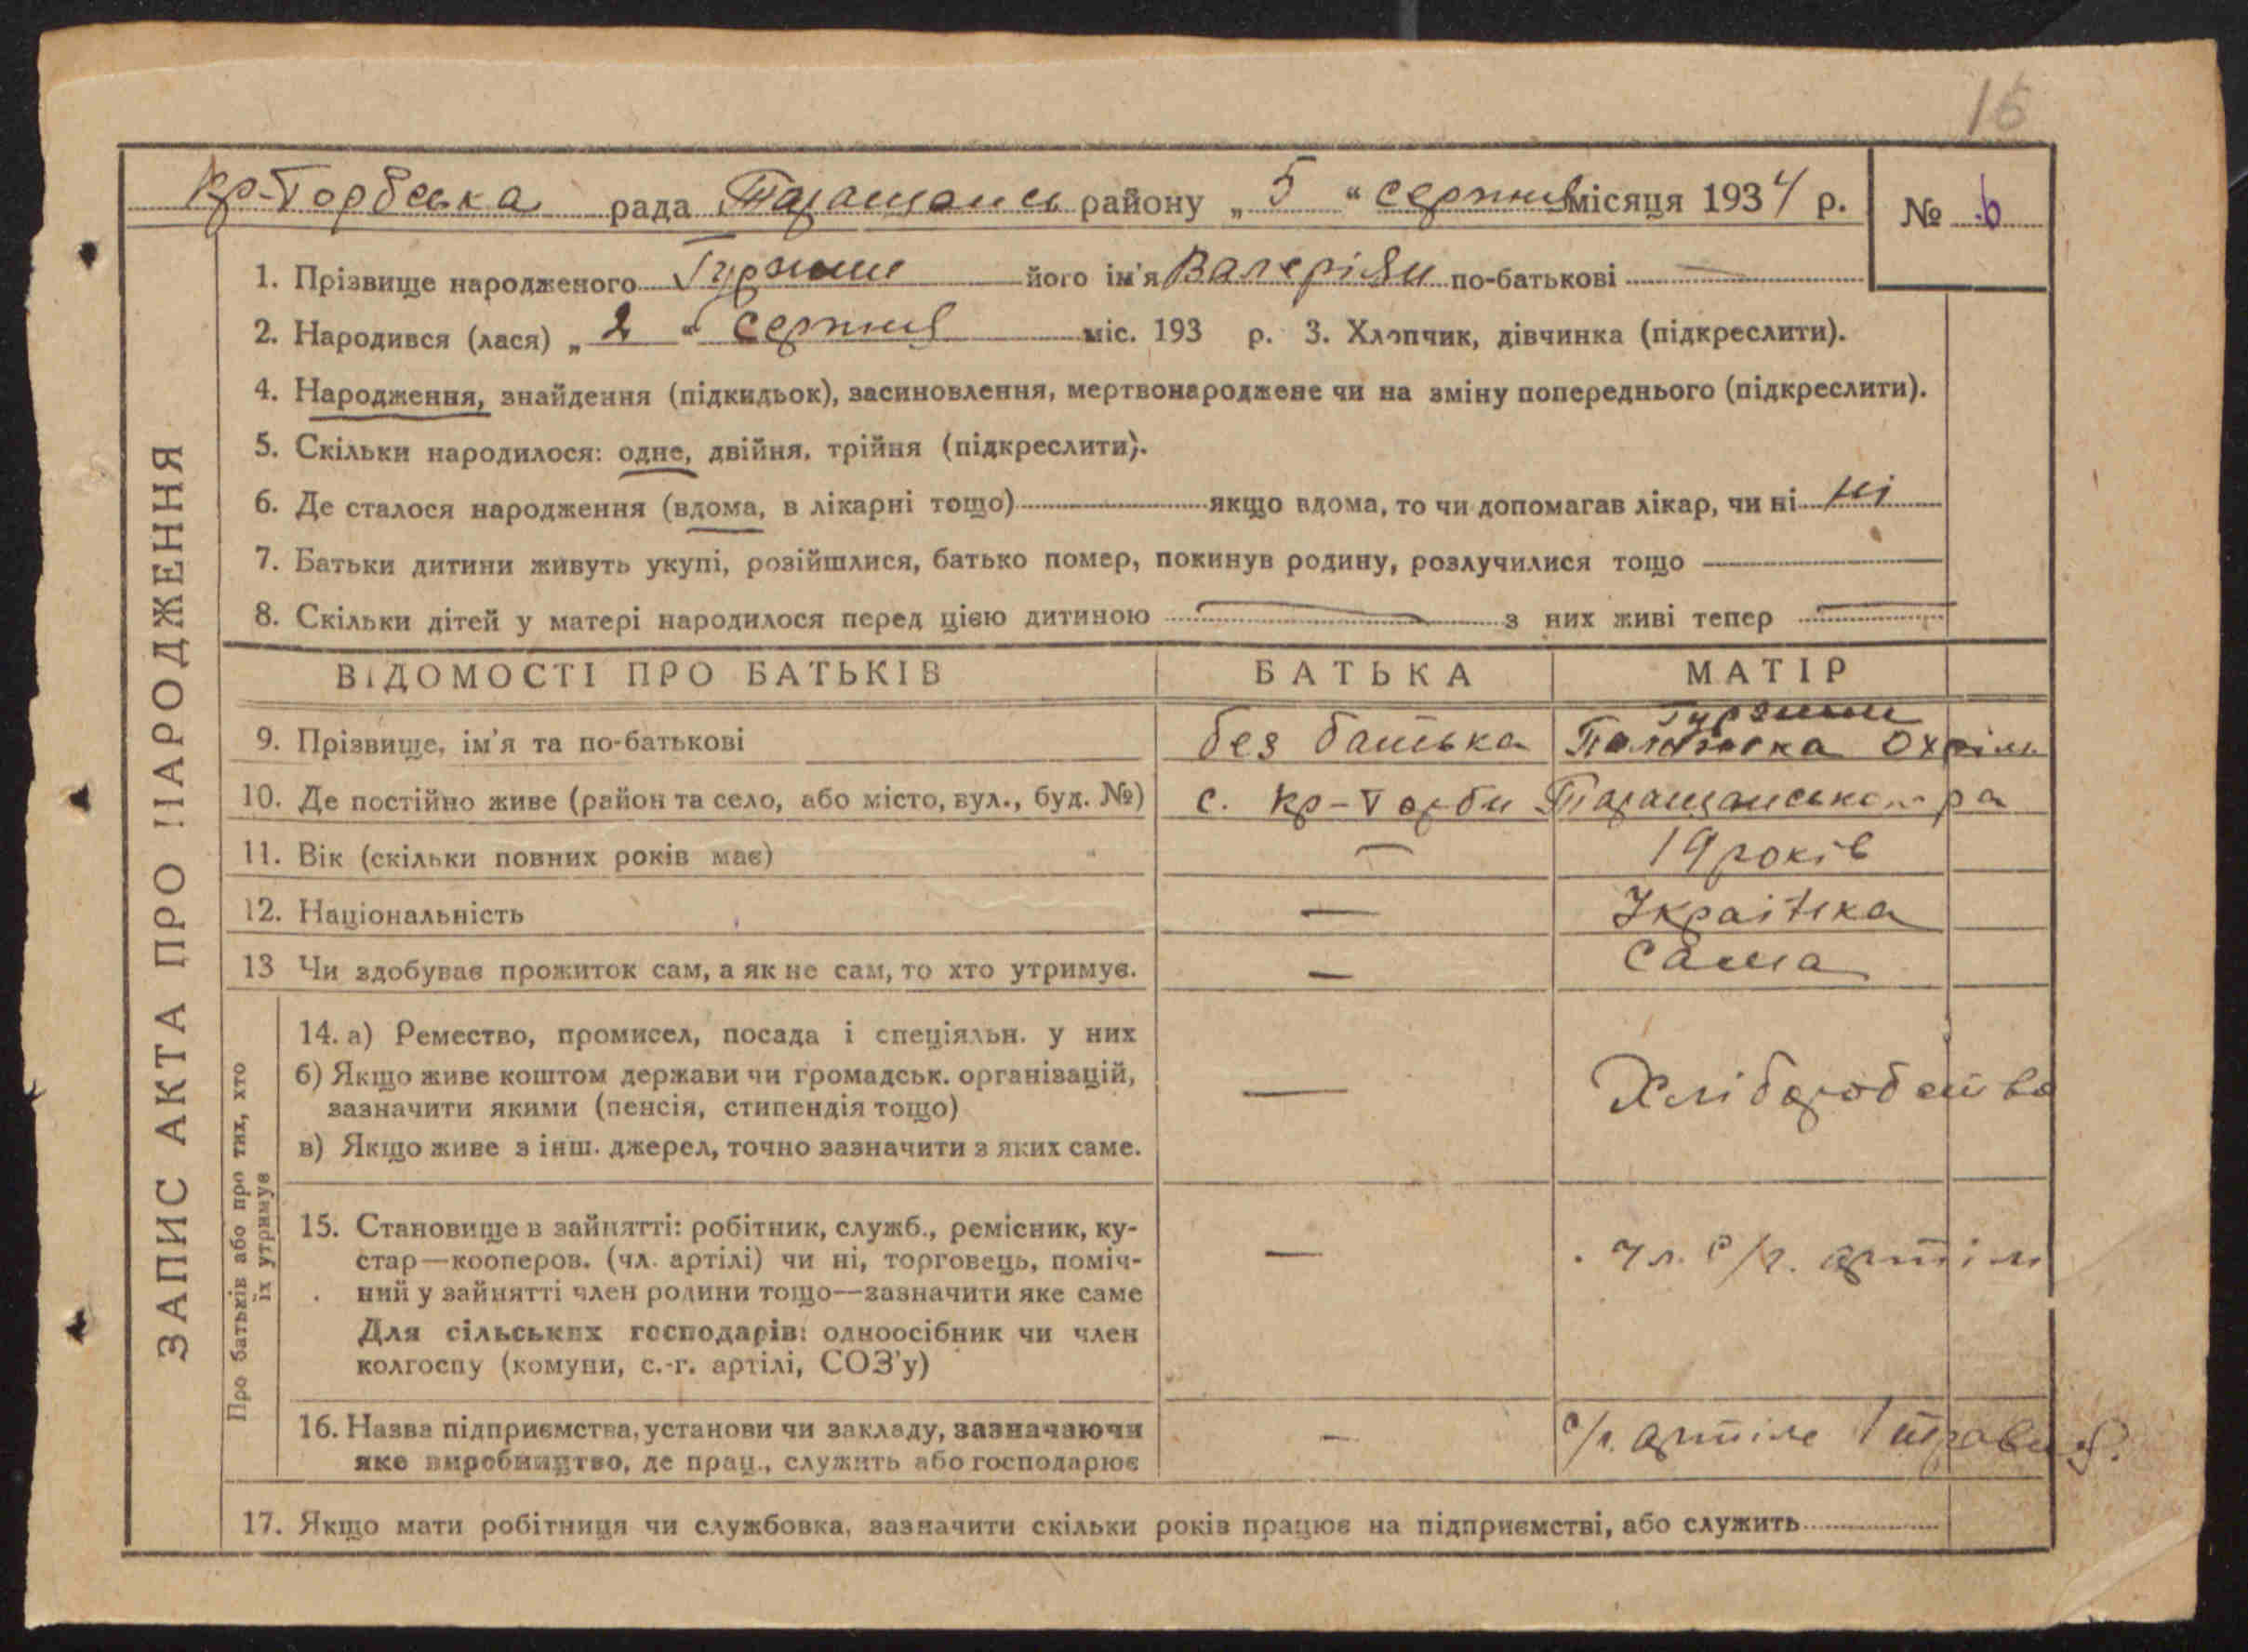 15
Кр-Торбська рада Таращансь району „ 5 “ серпня місяця 1934 р. № 6
1. Прізвище народженого його ім'я Валеріян по-батькові —
2. Народився (лася) „ 2 “ Серпня міс. 193 р. 3. Хлопчик, дівчинка (підкреслити).
4. Народження, знайдення (підкидьок), засиновлення, мертвонароджене чи на зміну попереднього (підкреслити).
5. Скільки народилося: одне, двійня, трійня (підкреслити).
6. Де сталося народження (вдома, в лікарні тощо) якщо вдома, то чи допомагав лікар, чи ні ні
7. Батьки дитини живуть укупі, розійшлися, батько помер, покинув родину, розлучилися тощо
8. Скільки дітей у матері народилося перед цією дитиною — з них живі тепер —
ВІДОМОСТІ ПРО БАТЬКІВ БАТЬКА МАТІР
9. Прізвище, ім'я та по-батькові без батька
10. Де постійно живе (район та село, або місто, вул., буд. №) с. Кр-Торби Таращанського ра
11. Вік (скільки повних років має) — 19 років
12. Національність — Українка
13 Чи здобуває прожиток сам, а як не сам, то хто утримує. — Сама
14. а) Ремество, промисел, посада і спеціяльн. у них
б) Якщо живе коштом держави чи громадськ. організацій,
зазначити якими (пенсія, стипендія тощо) — Хліборобство
в) Якщо живе з інш. джерел, точно зазначити з яких саме.
15. Становище в зайнятті: робітник, служб., ремісник, ку-
стар—кооперов. (чл. артілі) чи ні, торговець, поміч- — чл. с/г. артілі
ний у зайнятті член родини тощо—зазначити яке саме
Для сільських господарів: одноосібник чи член
колгоспу (комуни, с.-г. артілі, СОЗ'у)
16. Назва підприємства, установи чи закладу, зазначаючи — с/г. артіль 1 травня.
яке виробництво, де прац., служить або господарює
17. Якщо мати робітниця чи службовка, зазначити скільки років працює на підприємстві, або служить
ЗАПИС АКТА ПРО НАРОДЖЕННЯ
Про батьків або про тих, хто
їх утримує